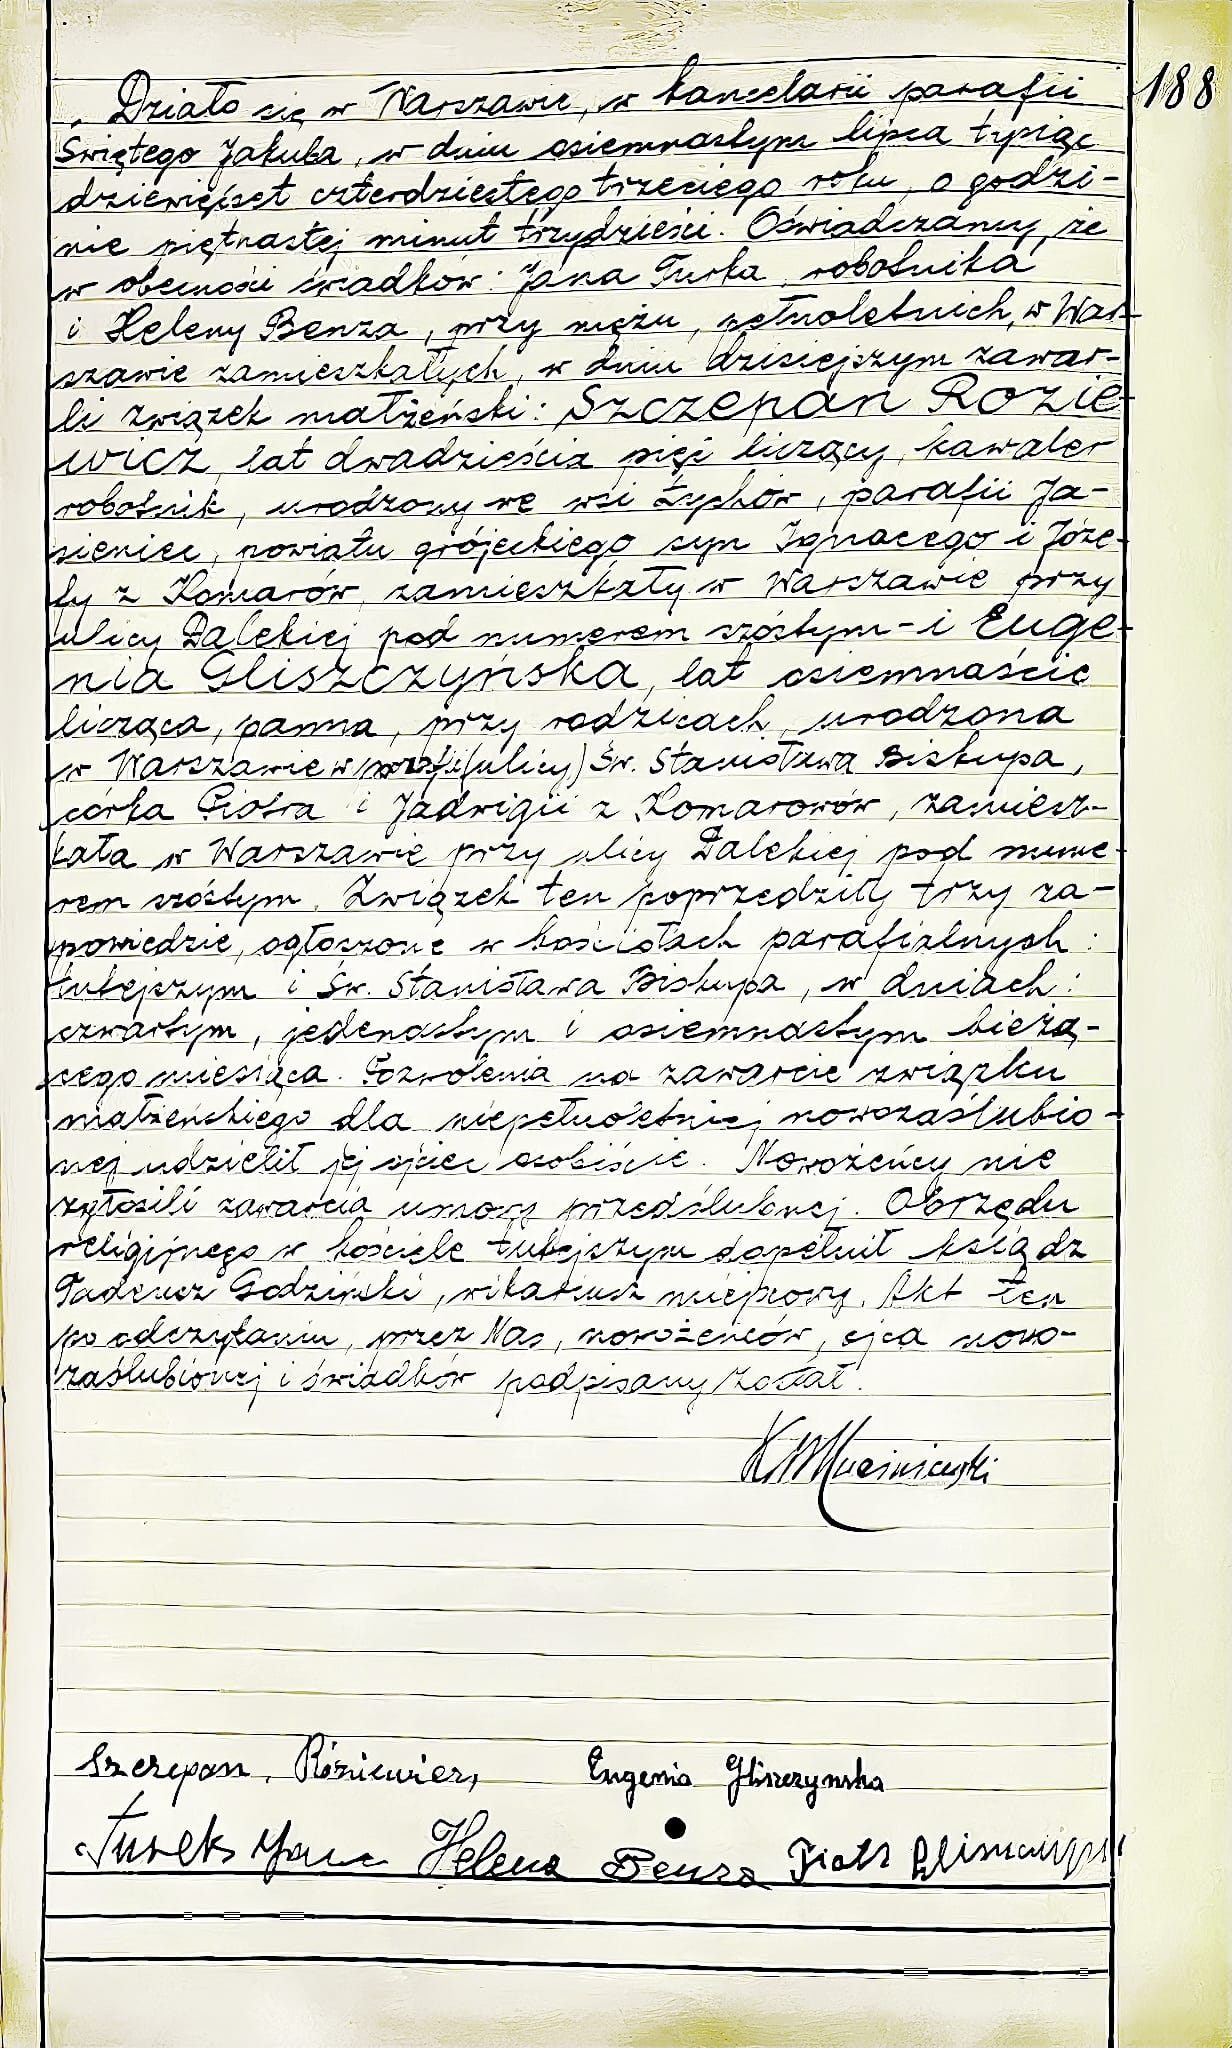 188
Działo się w Warszawie, w kancelarii parafii
Świętego Jakuba, w dniu osiemnastym lipca tysiąc
dziewięćset czterdziestego trzeciego roku, o godzi-
nie piętnastej minut trzydzieści. Oświadczamy, że
w obecności świadków: Jana Turka, robotnika
i Heleny Benza, przy mężu, pełnoletnich, w War-
szawie zamieszkałych, w dniu dzisiejszym zawar-
li związek małżeński: Szczepan Rozie-
wicz, lat dwadzieścia pięć liczący, kawaler
robotnik, urodzony we wsi Łychów, parafii Ja-
sieniec, powiatu grójeckiego syn Ignacego i Józe-
fy z Komarów, zamieszkały w Warszawie przy
ulicy Dalekiej pod numerem szóstym - i Euge-
nia Gliszczyńska, lat osiemnaście
licząca, panna, przy rodzicach, urodzona
w Warszawie w parafii (ulicy) Św. Stanisława Biskupa,
córka Piotra i Jadwigii z Komarowów, zamiesz-
kała w Warszawie przy ulicy Dalekiej pod nume-
rem szóstym. Związek ten poprzedziły trzy za-
powiedzie, ogłoszone w kościołach parafialnych:
tutejszym i Św. Stanisława Biskupa, w dniach:
czwartym, jedenastym i osiemnastym bieżą-
cego miesiąca. Pozwolenia na zawarcie związku
małżeńskiego dla niepełnoletniej nowozaślubio-
nej udzielił jej ojciec osobiście. Nowożeńcy nie
zgłosili zawarcia umowy przedślubnej. Obrzędu
religijnego w kościele tutejszym dopełnił ksiądz
Tadeusz Godziński, wikariusz miejscowy. Akt ten
po odczytaniu, przez Nas, nowożeńców, ojca nowo-
zaślubionej i świadków podpisany został.
Szczepan Róziewicz, Eugenia Gliszczynska
Turek Jan Helena Benza Piotr